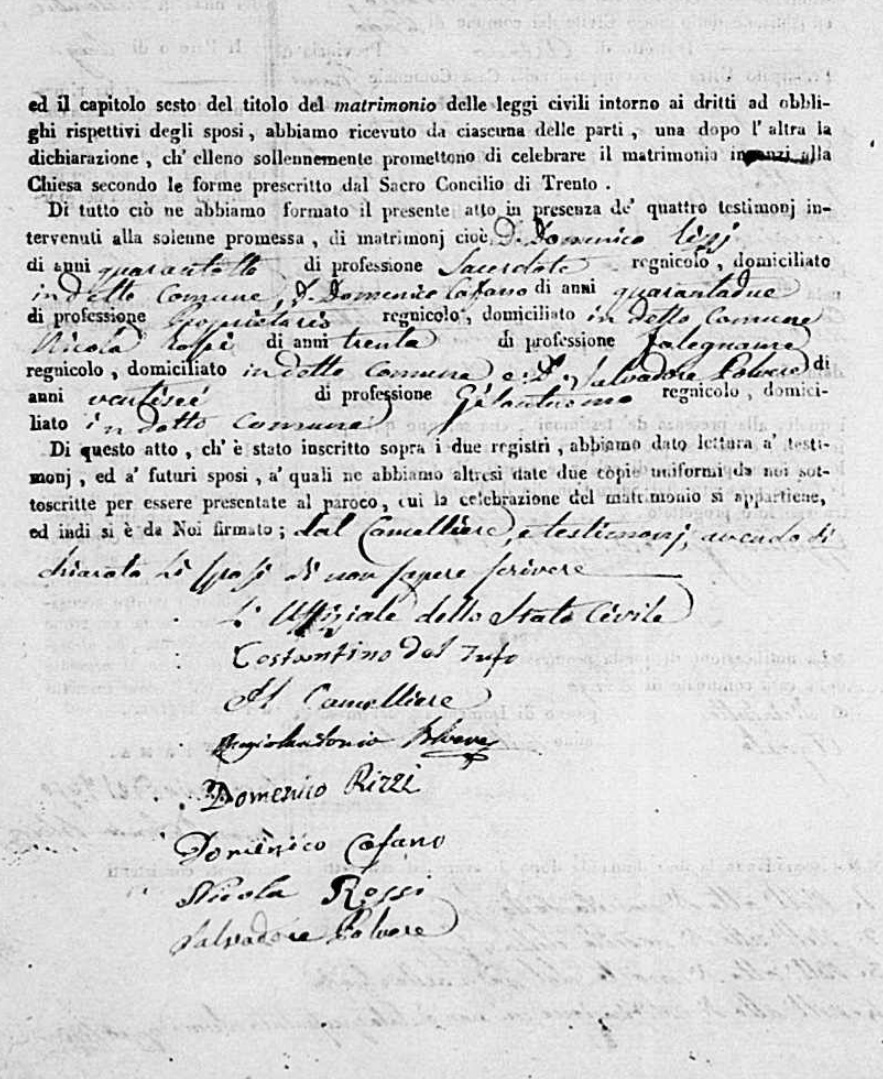 ed il capitolo sesto del titolo del matrimonio delle leggi civili intorno ai dritti ad obbli-
ghi rispettivi degli sposi, abbiamo ricevuto da ciascuna delle parti, una dopo l'altra la
dichiarazione, ch'elleno sollennemente promettono di celebrare il matrimonio innanzi alla
Chiesa secondo le forme prescritto dal Sacro Concilio di Trento.
Di tutto ciò ne abbiamo formato il presente atto in presenza de' quattro testimonj in-
tervenuti alla solenne promessa, di matrimonj cioè D. Domenico Rizzi
di anni quarantotto di professione Sacerdote regnicolo, domiciliato
in detto Comune, D. Domenico Cafano di anni quarantadue
di professione Proprietario regnicolo, domiciliato in detto Comune
Nicola Rossi di anni trenta di professione Falegname
regnicolo, domiciliato in detto Comune e D. Salvadore Polvere di
anni ventisei di professione Gelantuomo regnicolo, domici-
liato in detto Comune
Di questo atto, ch'è stato inscritto sopra i due registri, abbiamo dato lettura a' testi-
monj, ed a' futuri sposi, a' quali ne abbiamo altresi date due còpie uniformi da noi sot-
toscritte per essere presentate al paroco, cui la celebrazione del matrimonio si appartiene,
ed indi si è da Noi firmato; dal Cancelliere, e testimonj, avendo di
chiarato li sposi di non sapere scrivere
L'Uffiziale dello Stato Civile
Costantino del Tufo
Il Cancelliere
Domenico Rizzi
Domenico Cafano
Nicola Rossi
Salvadore Polvere